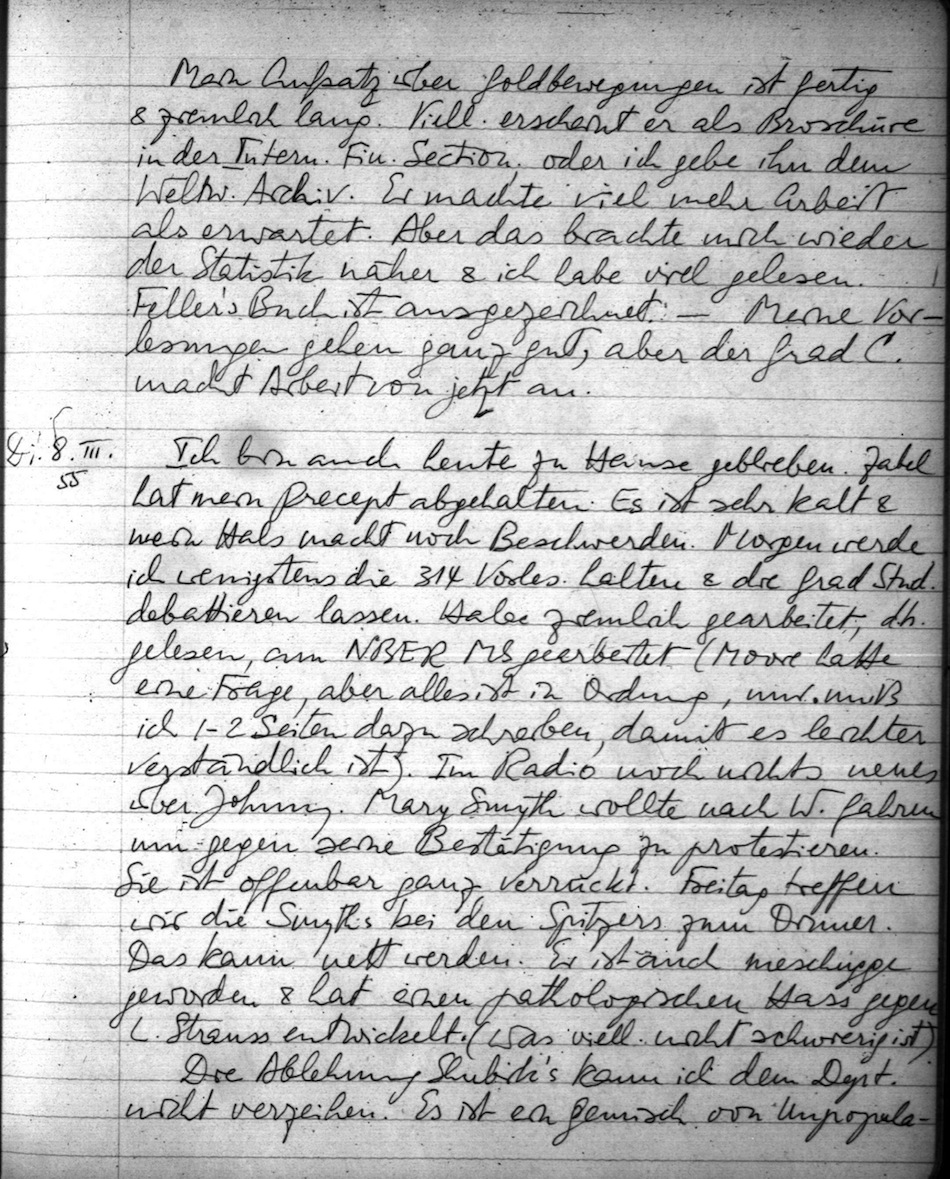 Mein Aufsatz über Goldbewegungen ist fertig
& ziemlich lang. Viell. erscheint er als Broschüre
in der Intern. Fin. Section, oder ich gebe ihn dem
Weltw. Archiv. Er machte viel mehr Arbeit
als erwartet. Aber das brachte mich wieder
der Statistik näher & ich habe viel gelesen.
Feller's Buch ist ausgezeichnet. — Meine Vor-
lesungen gehen ganz gut, aber der Grad C.
macht Arbeit von jetzt an.
Di. 8. III.
55
Ich bin auch heute zu Hause geblieben. Zabel
hat mein precept abgehalten. Es ist sehr kalt &
mein Hals macht noch Beschwerden. Morgen werde
ich wenigstens die 314 Vorles. halten & die Grad Stud.
debattieren lassen. Habe ziemlich gearbeitet, dh.
gelesen, am NBER MS gearbeitet (Moore hatte
eine Frage, aber alles ist in Ordnung, nur muß
ich 1-2 Seiten dazu schreiben, damit es leichter
verständlich ist). Im Radio noch nichts neues
über Johnny. Mary Smyth wollte nach W. fahren
um gegen seine Bestätigung zu protestieren.
Sie ist offenbar ganz verrückt. Freitag treffen
wir die Smyths bei den Spitzers zum Dinner.
Das kann nett werden. Er ist auch meschugge
geworden & hat einen pathologischen Hass gegen
L. Strauss entwickelt. (was viell. nicht schwierig ist)
Die Ablehnung Shubik's kann ich dem Dept.
nicht verzeihen. Es ist ein Gemisch von Unpopula-